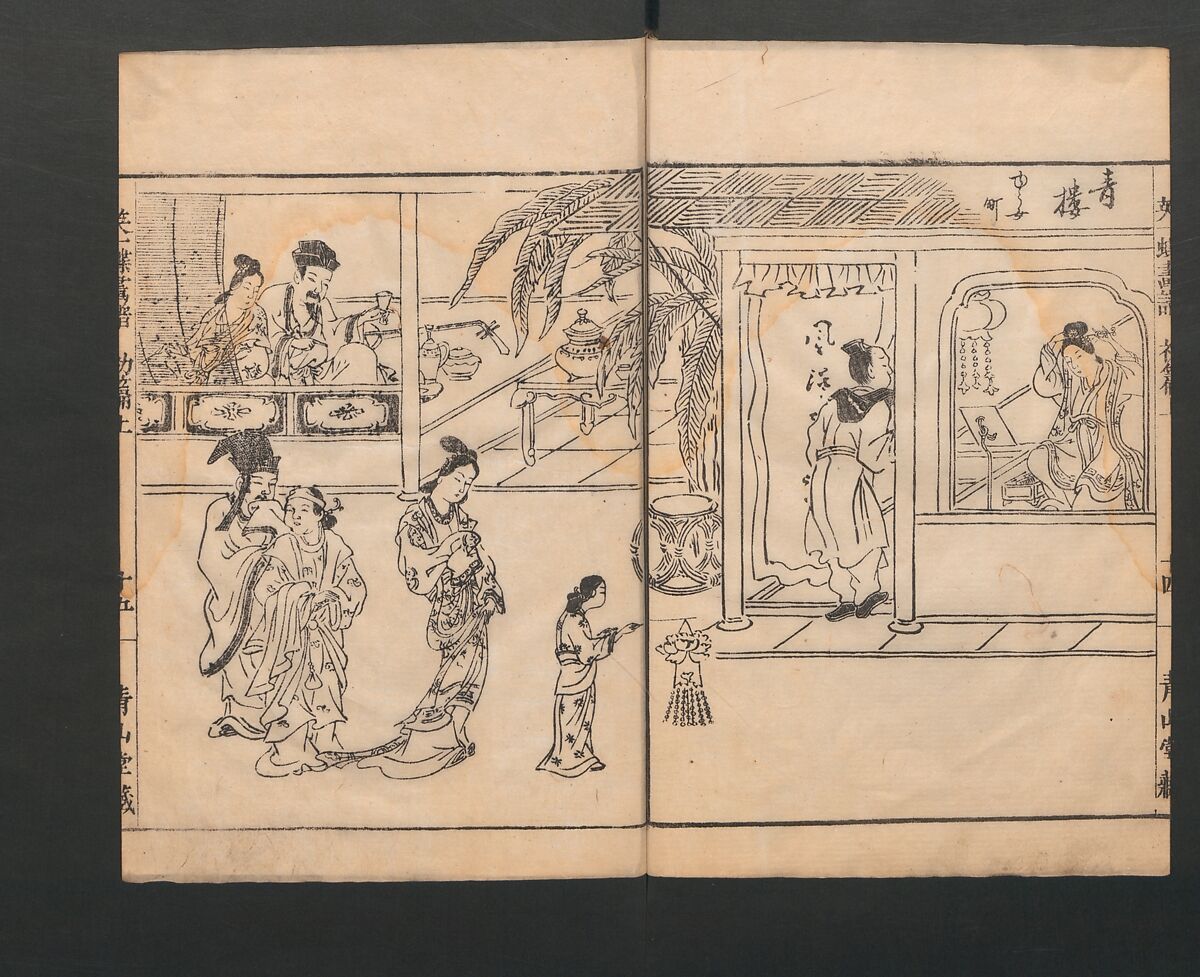 青樓
町
風流
英一蝶畫譜 初篇 上 十四 青山堂藏
英一蝶畫譜 初篇 上 十五 青山堂藏